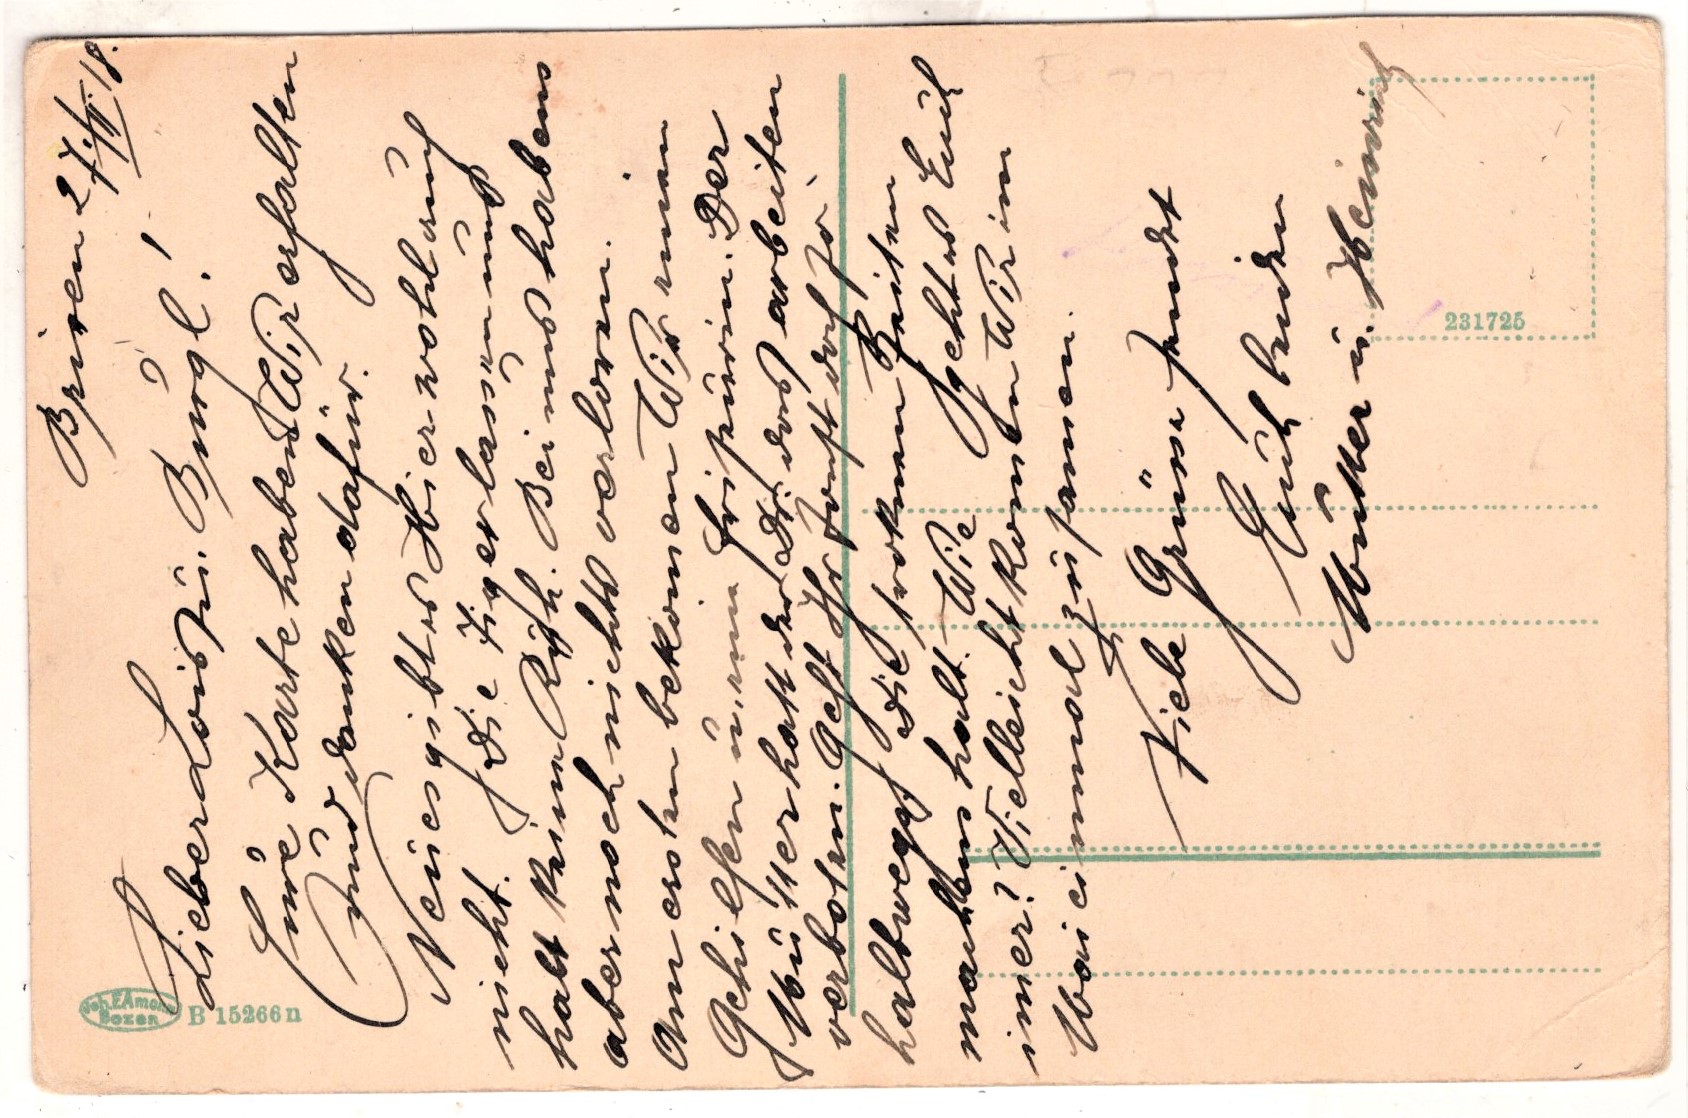 Brixen 27./VI. 18.
Lieber Lois u. Burgl!
Eure Karte haben Wir erhalten
und danken dafür.
Neues gibt es Hier wohl auch
nicht. Die Figerlassen uns
halt keine Ruh. Bei uns habens
aber noch nichts verloren.
Am ersten bekomen Wir einen
Gehilfen u. eine Friseurin. Der
Mutter hatt der Dr das arbeiten
verboten. Geht Ihr sonst doch so
halbwegs die trokenen Zeiten
machens halt. Wie geht es Euch
imer? Vielleicht komen Wir im
Mai einmal zusamen.
Viele Grüsse sendet
Euch beiden
Mutter u. Heinrich
Joh. F. Amonn
Bozen
B 15266 n
231725